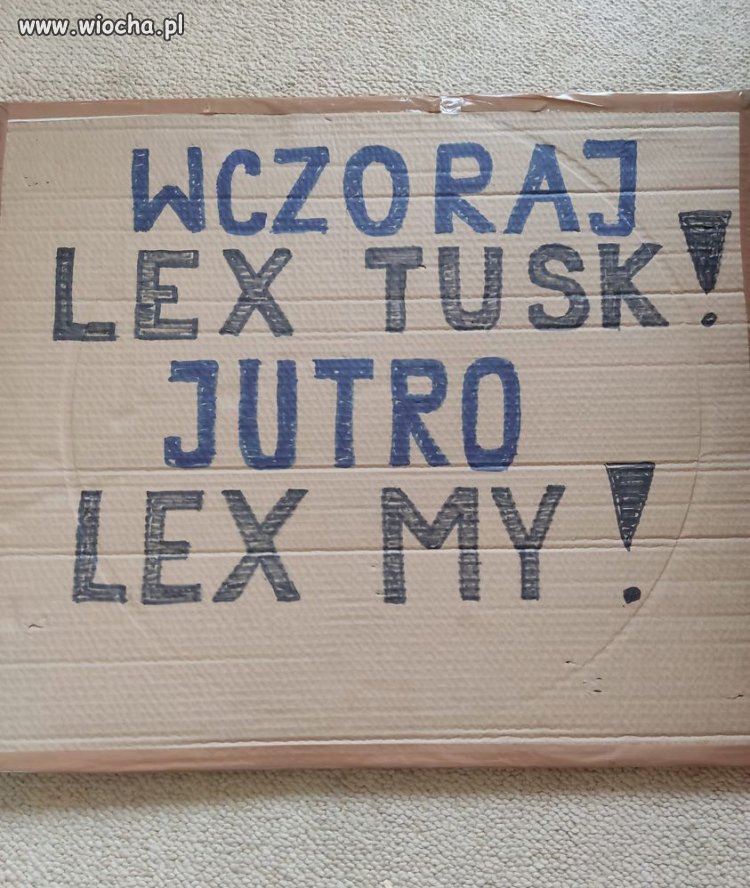 www.wiocha.pl
WCZORAJ
LEX TUSK!
JUTRO
LEX MY!